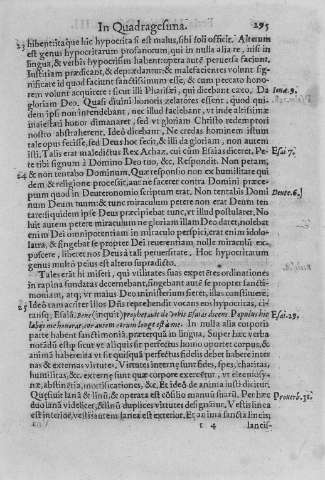 In Quadragesima. 295
23 hibentitaque hic hypocrita si est malus, sibi soli officit. Alterum
est genus hypocritarum profanorum, qui in nulla alia re, nisi in
lingua, & verbis hypocrisim habent: opera autē peruersa faciunt,
Iustitiam prædicant, & deprædantur: & malefacientes volunt sig-
nificare id quod faciunt sanctissimum esse, & cum peccato hono-
rem volunt acquirere: sicut illi Pharisæi, qui dicebant cæco, Da Ioan. 9.
gloriam Deo. Quasi diuini honoris zelatores essent, quod qui-
dem ipsi non intendebant, nec illud faciebant, vt inde altissimæ
maiestati honor dimanaret, sed vt gloriam Christo redemptori
nostro abstraherent, Ideò dicebant, Ne credas hominem istum
tale opus fecisse, sibi Deus hoc fecit, & illi da gloriam, non autem
isti. Talis erat maledictus Rex Achaz, cui cum Esaias diceret, Pe- Esai. 7.
te tibi signum à Domino Deo tuo, &c. Respondit. Non petam,
24 & non tentabo Dominum, Quæ responsio non ex humilitate qui
dem, & religione processit, aut ne faceret contra Domini præce-
ptum quod in Deuteronomio scriptum erat, Non tentabis Domi Deute. 6.
num Deum tuum: & tunc miraculum petere non erat Deum ten
tare: si quidem ipse Deus præcipiebat tunc, vt illud postularet, No
luit autem petere miraculum ne gloriam illam Deo daret, nolebat
enim Dei omnipotentiam in miraculo perspici, erat enim idolo-
latra, & singebat se propter Dei reuerentiam nolle miraculū ex-
poscere, libere nos Deus à tali peruersitate. Hoc hypocritarum
genus multò peius est altero supradicto.
Tales erāt hi miseri, qui vtilitates suas expetētes ordinationes
in rapina fundatas decernebant, singebant autē se propter sancti-
moniam, atq; vt maius Deo ministerium fieret, illas constituere.
25 Ideò tam acriter illos Dñs reprehendit vocans eos hypocritas, ci-
tansq; Esaiā. Bene (inquit) prophetauit de vobis Esaias dicens. Populus hic Esai. 29.
labijs me honorat, cor autem eorum longe est à me. In nulla alia corporis
parte habent sanctimoniā præterquā in lingua. Super hæc verba
notādū est: quòd sicut vt aliquis sit perfectus homo oportet corpus, &
animā habere: ita vt sit quisquā perfectus fidelis debet habere inter
nas & externas virtutes. Virtutes internę sunt fides, spes, charitas,
humilitas, &c. externę sunt quæ corpore exercētur, vt eleemosy-
næ, abstinētia, mortificationes, &c. Et ideò de anima iusti dicitur,
Quæsiuit lanā & linū, & operata est cōsilio manuū suarū. Per hæc Prouer. 31.
duo lanā videlicet, & linū duplices virtutes designātur. Vestis linea
est interior, vestis autem lanea est exterior. Et in anima sancta lineis;
t 4 laneis-